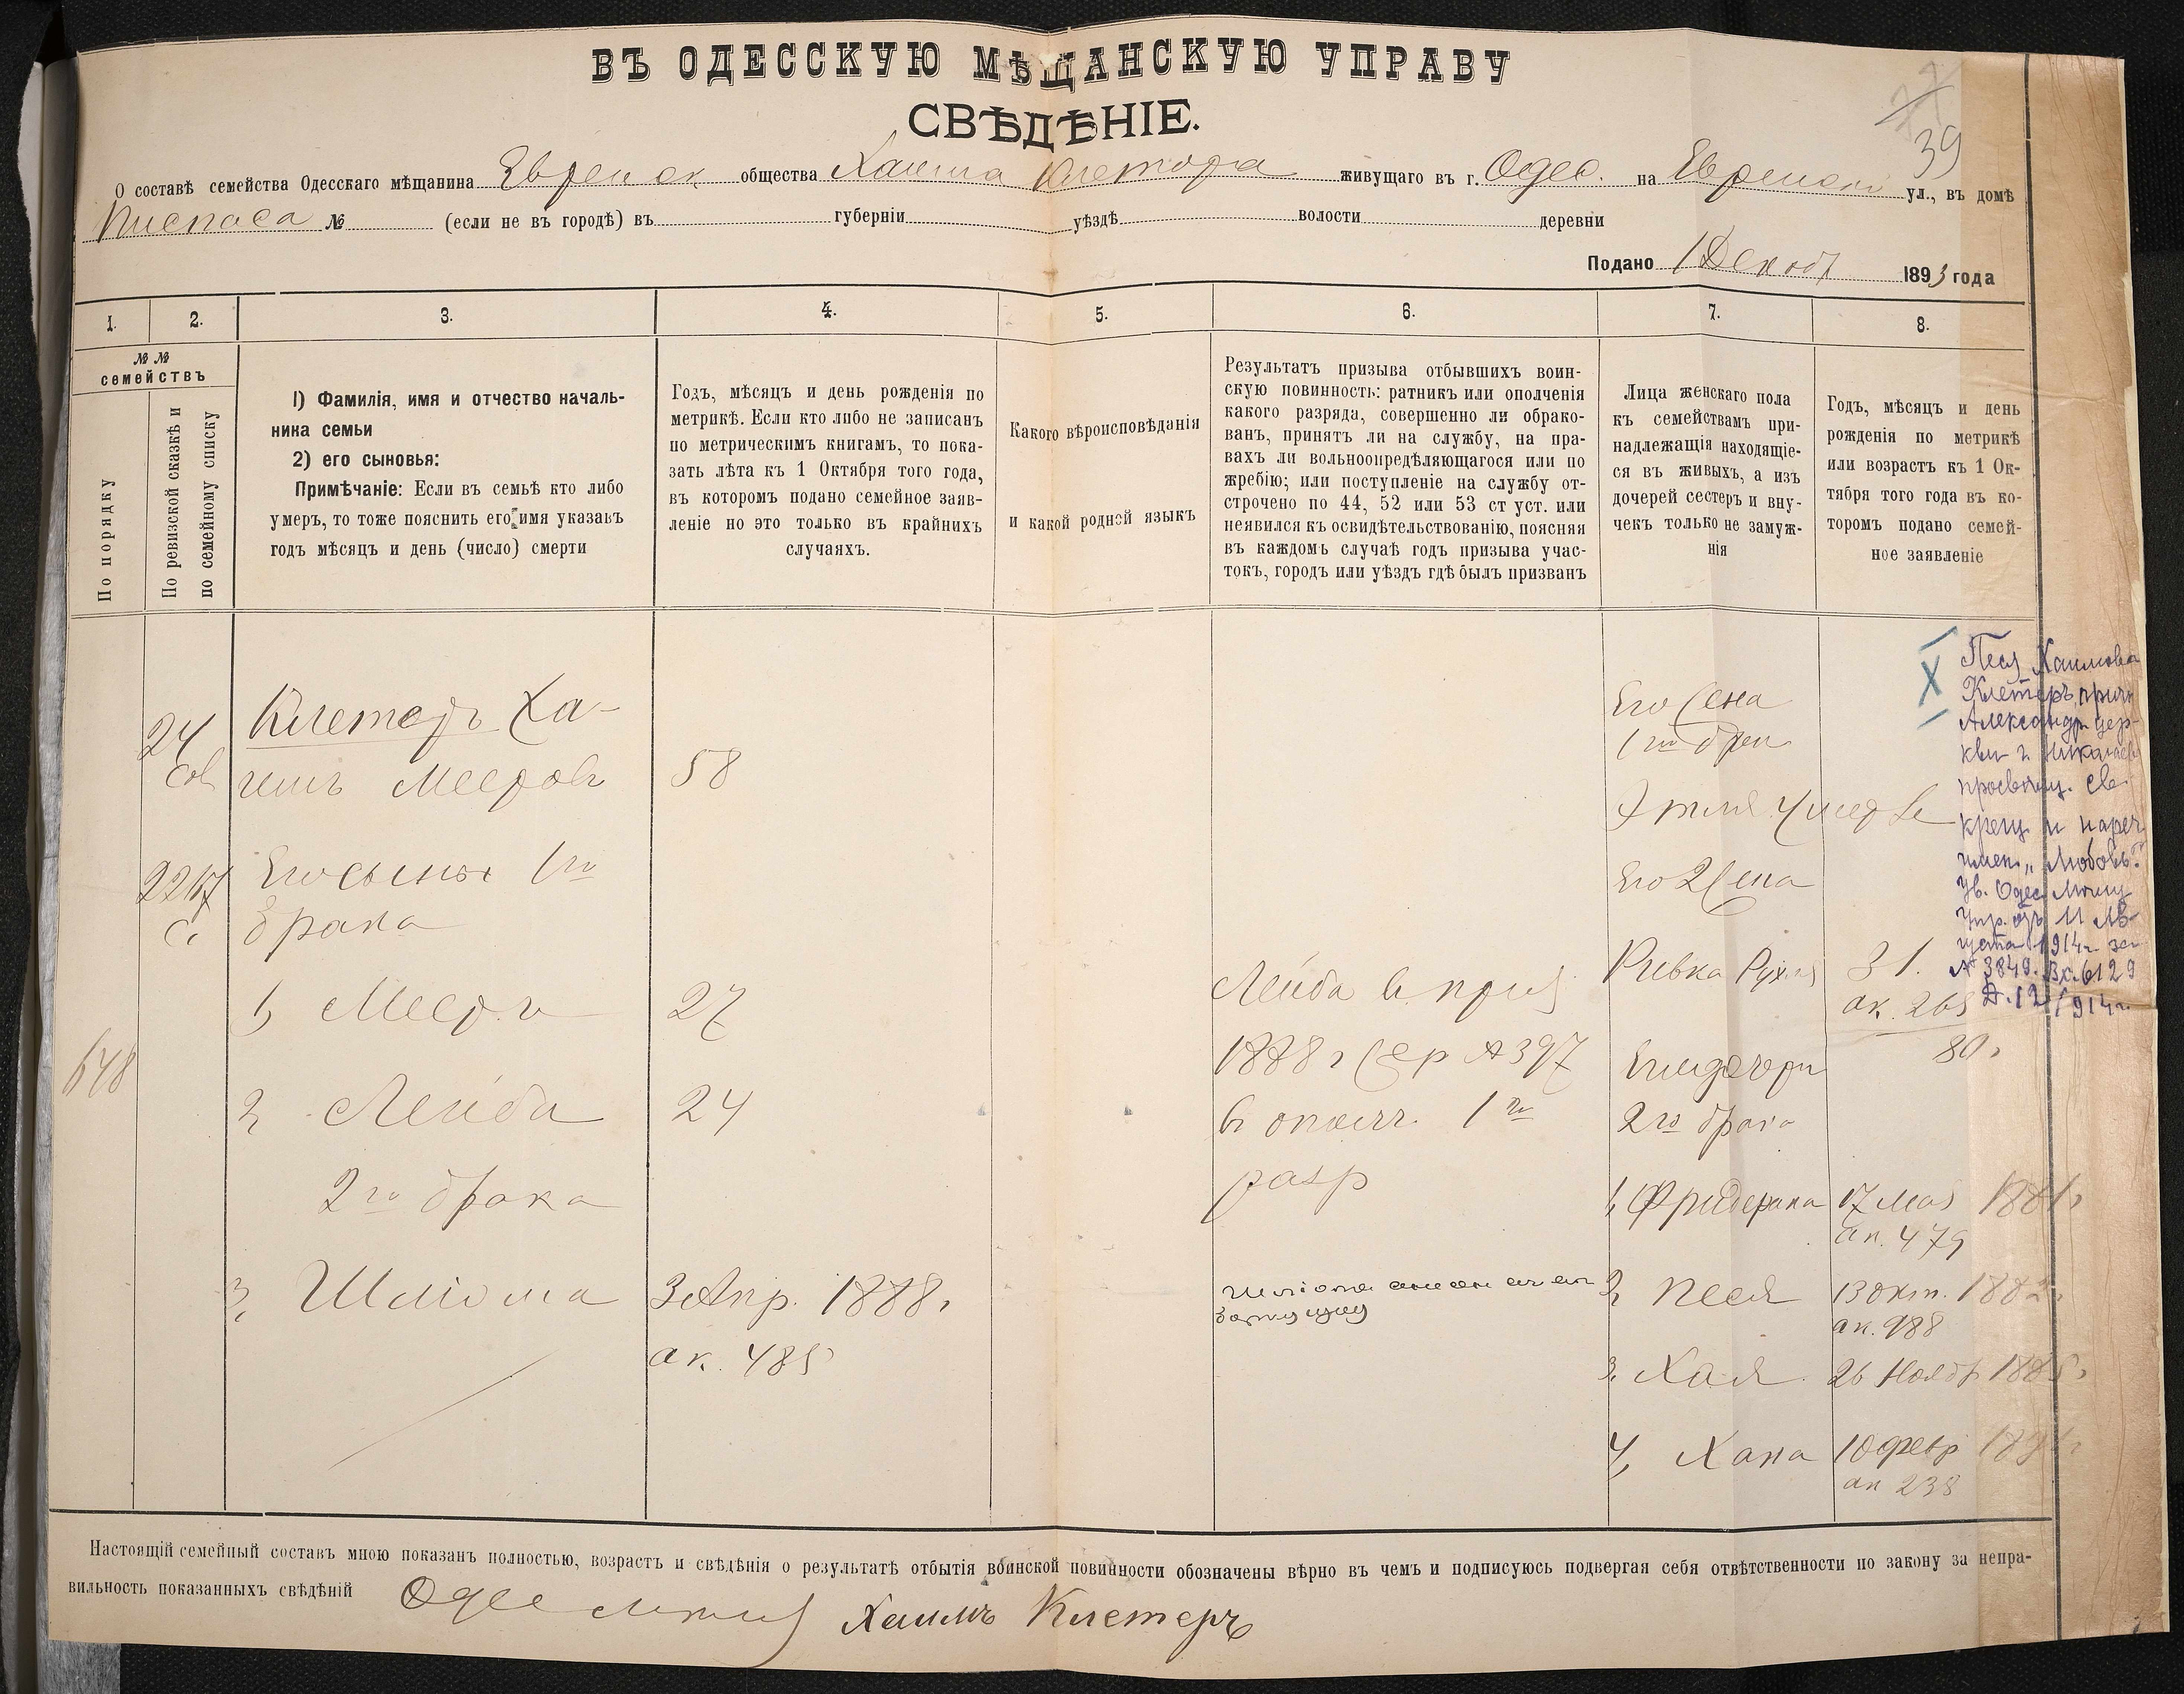 ВЪ ОДЕССКУЮ МѢЩАНСКУЮ УПРАВУ
СВѢДѢНІЕ.
39
О составѣ семейства Одесскаго мѣщанина Еврейск общества Хаима Клетера живущаго въ г. Одес. на Еврейской ул., въ домѣ
№ (если не въ городѣ) въ губерніи уѣздѣ волости деревни
Подано 1 Декабр 1893 года
1. 2. 3. 4. 5. 6. 7. 8.
№ № семействъ
По порядку
По ревизской сказкѣ и
по семейному списку
1) Фамилія, имя и отчество началь-
ника семьи
2) его сыновья:
Примѣчаніе: Если въ семьѣ кто либо
умеръ, то тоже пояснить его имя указавъ
годъ мѣсяцъ и день (число) смерти
Годъ, мѣсяцъ и день рожденія по
метрикѣ. Если кто либо не записанъ
по метрическимъ книгамъ, то пока-
зать лѣта къ 1 Октября того года,
въ которомъ подано семейное заяв-
леніе но это только въ крайнихъ
случаяхъ.
Какого вѣроисповѣданія
и какой родной языкъ
Результатъ призыва отбывшихъ воин-
скую повинность: ратникъ или ополченія
какого разряда, совершенно ли обрако-
ванъ, принятъ ли на службу, на пра-
вахъ ли вольноопредѣляющагося или по
жребію; или поступленіе на службу от-
строчено по 44, 52 или 53 ст уст. или
неявился къ освидѣтельствованію, поясняя
въ каждомъ случаѣ годъ призыва учас-
токъ, городъ или уѣздъ гдѣ былъ призванъ
Лица женскаго пола
къ семействамъ при-
надлежащія находящіе-
ся въ живыхъ, а изъ
дочерей сестеръ и вну-
чекъ только не замуж-
нія
Годъ, мѣсяцъ и день
рожденія по метрикѣ
или возрастъ къ 1 Ок-
тября того года въ ко-
торомъ подано семей-
ное заявленіе
648
24
2217
Клетеръ Ха-
имъ Мееровъ
58
Его сыны 1го
брака
1, Мееръ
27
2, Лейба
24
2го брака
3, Шліома
3 Апр. 1888г
ак. 485
Лейба въ приз
1888 г жер № 397
въ ополч. 1го
разр
Шліома
Его жена
1го брака
Этля умерла
Его 2 жена
Ривка Рухля
31.
ак. 265
80г
Его дочери
2го брака
1, Фридерика
17 мая 1881г
ак. 479
2, Песя
13 окт. 1882г
ак. 988
3, Хая
26 Ноябр 1885г
4, Хана
10 февр 189
ак 238
Х
Песя Хаимова
Клетеръ, причт
Александр. цер-
кви г. Николаев
просвѣщ. св.
крещ. и нареч
имен. „Любовь."
Ув. Одес. Мѣщ.
Упр. отъ 11 Ав-
густа 1914г. за
№ 3849. Вх. 6129
Д. 12/1914г.
Настоящій семейный составъ мною показанъ полностью, возрастъ и свѣдѣнія о результатѣ отбытія воинской повинности обозначены вѣрно въ чемъ и подписуюсь подвергая себя отвѣтственности по закону за непра-
вильность показанныхъ свѣдѣній
Хаимъ Клетеръ